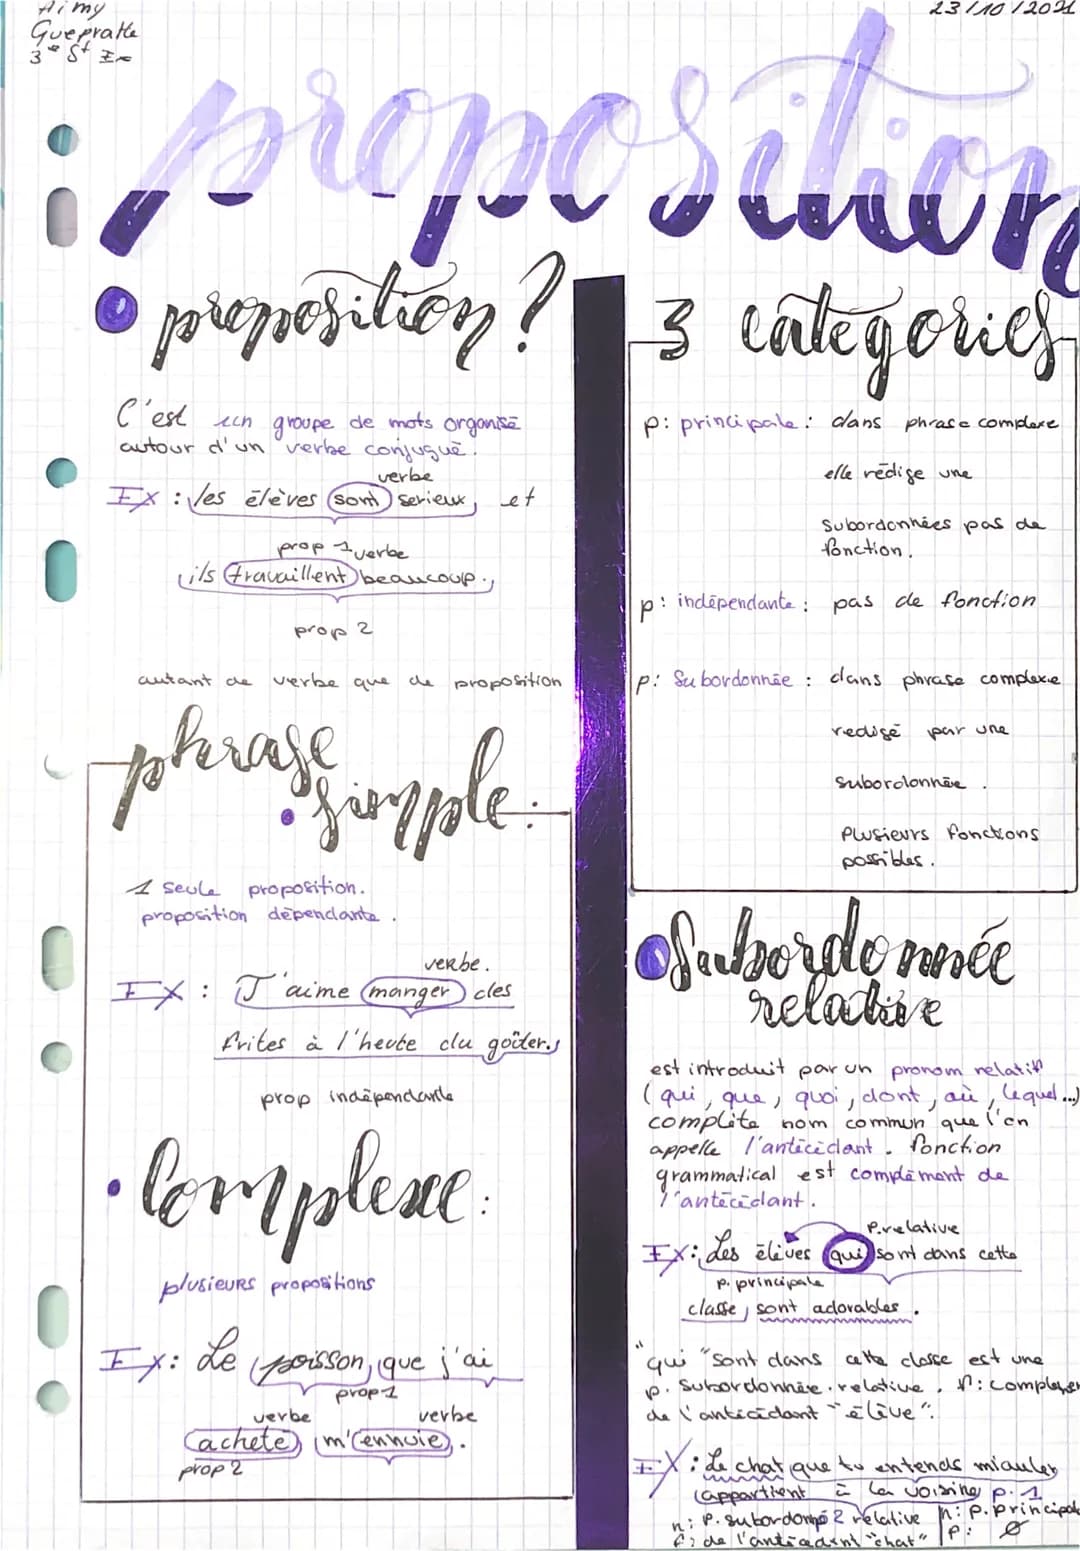 Aimy
Guepratte
3e St Ex
23/10/2021
proposition
proposition ?
C'est un groupe de mots organisé
autour d'un verbe conjugué.
verbe
EX : les élèves sont serieux, et
prop 1 verbe
ils travaillent beaucoup.
prop 2
autant de verbe que de proposition
phrase
simple :
1 seule proposition.
proposition dépendante.
verbe.
EX : J'aime manger des
frites à l'heure du goûter.
prop indépendante
Complexe :
plusieurs propositions
Ex : Le poisson, que j'ai
prop 1
verbe verbe
acheté, m'ennuie.
prop 2
3 catégories
p: principale : dans phrase complexe
elle rédige une
subordonnées pas de
fonction.
p: indépendante : pas de fonction
p: Subordonnée : dans phrase complexe
redigé par une
subordonnée.
Plusieurs fonctions
possibles.
Subordonnée
relative
est introduit par un pronom relatif
(qui, que, quoi, dont, où, lequel...)
complète nom commun que l'on
appelle l'antécédant. fonction
grammatical est complément de
l'antécédant.
P.relative
Ex : Les élèves qui sont dans cette
p. principale
classe, sont adorables.
"qui "sont dans cette classe est une
p. subordonnée. relative. f: complement
de l'antécédant "élève".
EX : Le chat que tu entends miauler
appartient à la voisine p. 1
n: P. subordonné 2 relative n: p. principale
f: de l'antécedent "chat" P: ∅